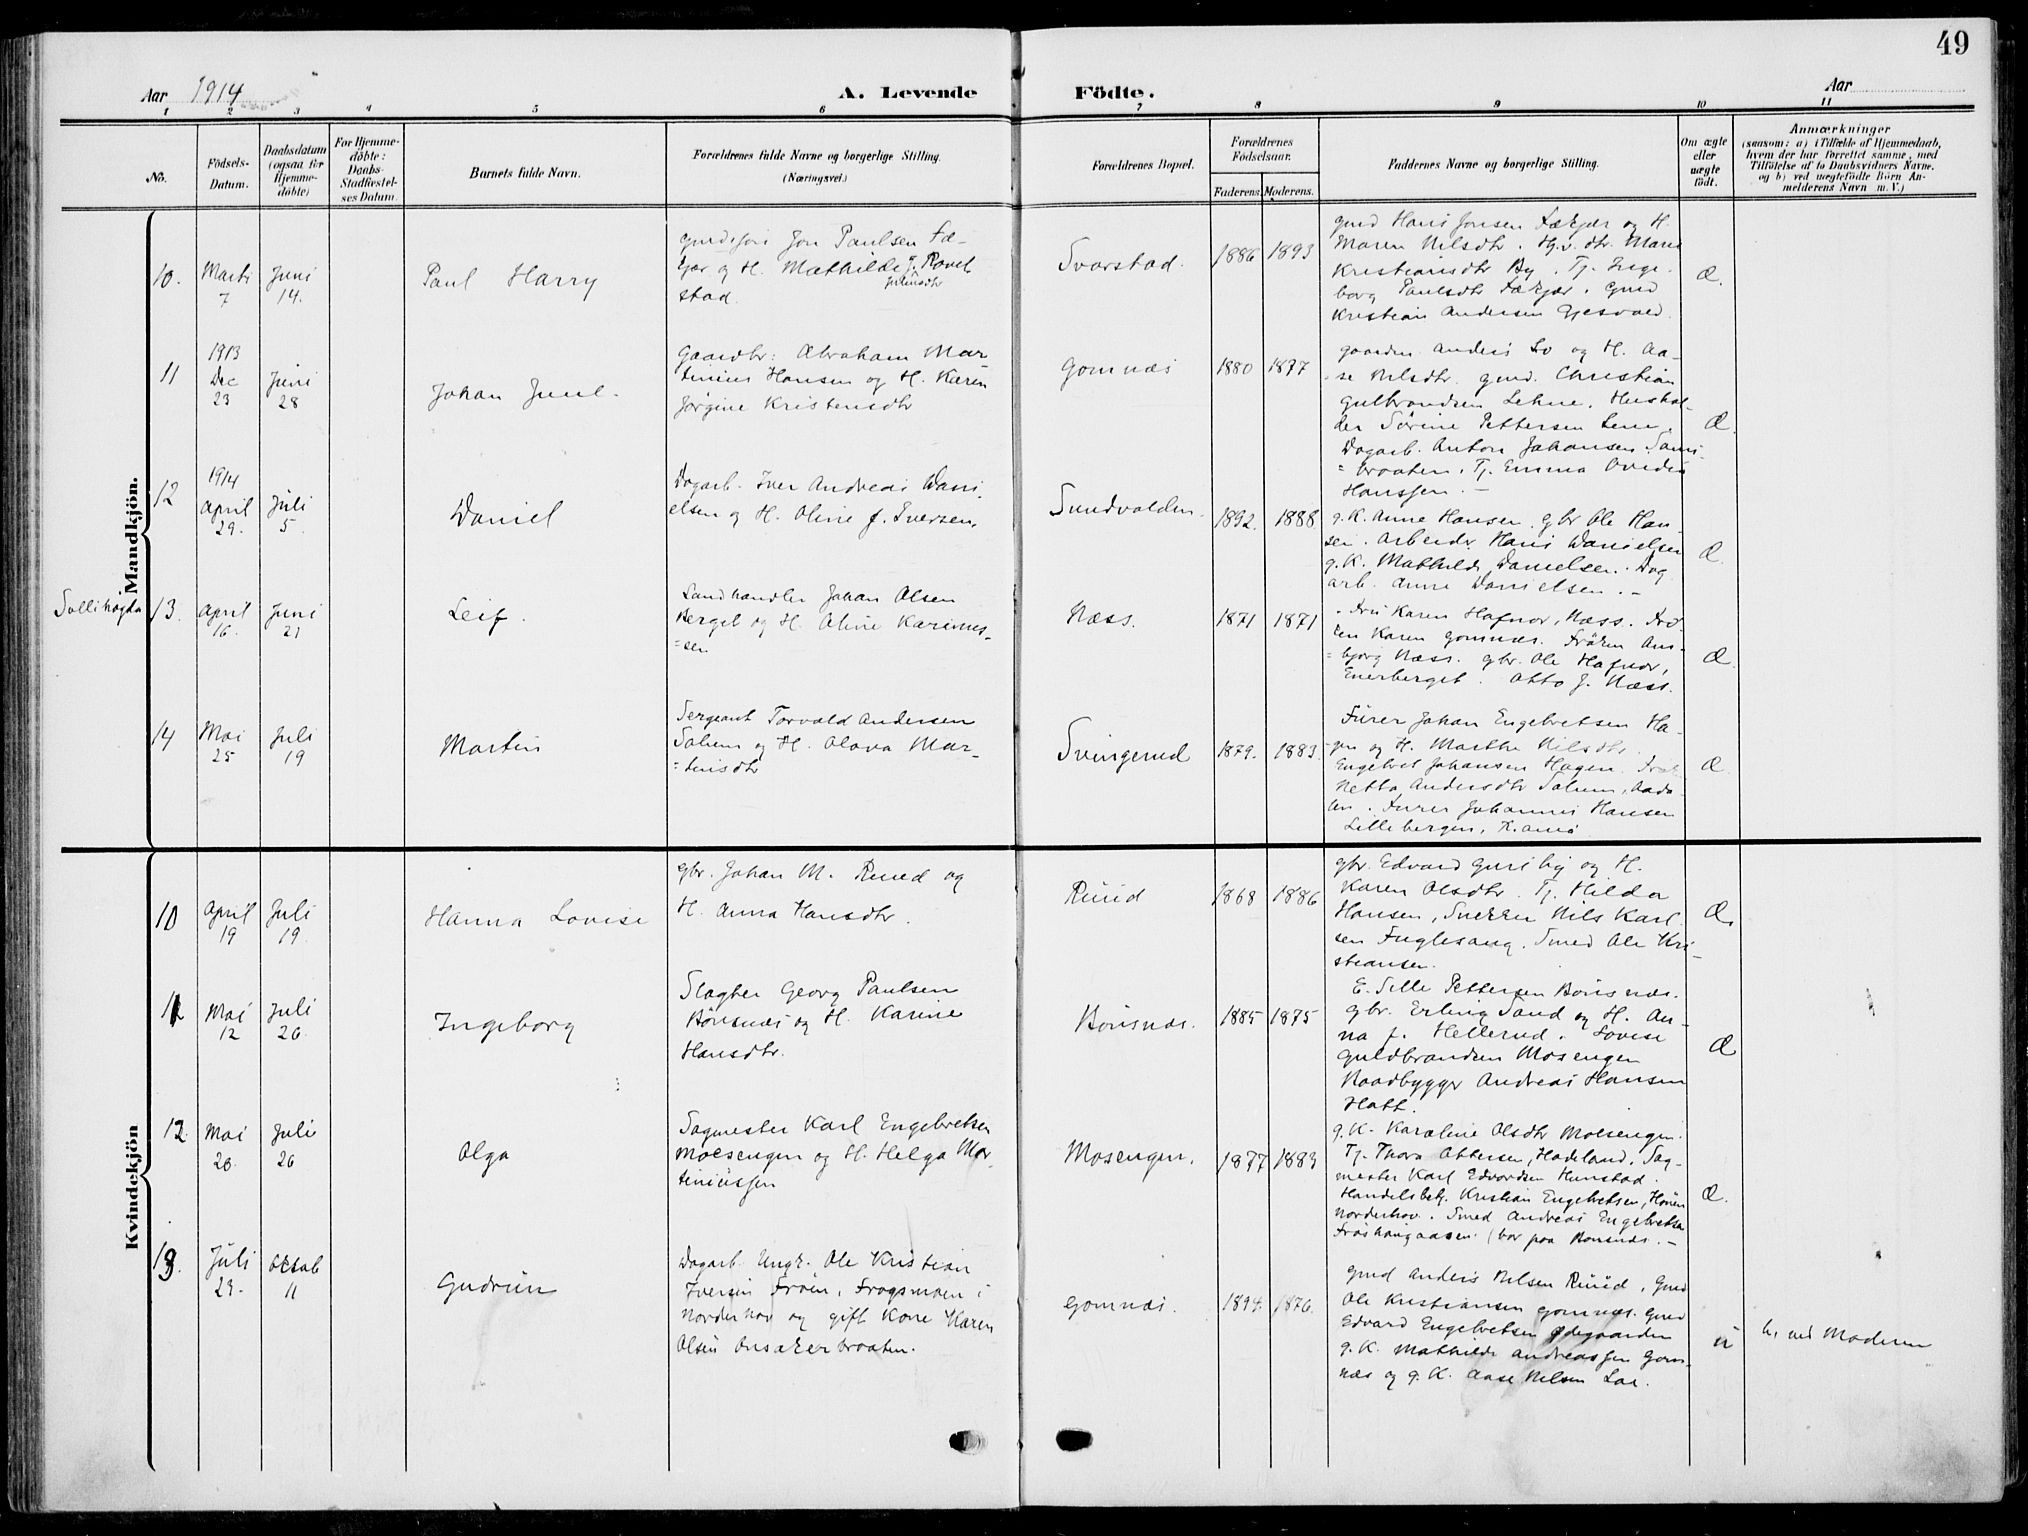 49
Aar 1914
A. Levende Födte.
Aar
1 2 3 4 5 6 7 8 9 10 11
No.
Födsels-
Datum.
Daabsdatum
(ogsaa for
Hjemme-
döbte)
For Hjemme-
döbte:
Daabs-
Stadfæstel-
ses Datum.
Barnets fulde Navn.
Forældrenes fulde Navne og borgerlige Stilling.
(Næringsvei.)
Forældrenes Bopæl.
Forældrenes
Födselsaar.
Faderens. Moderens.
Faddernes Navne og borgerlige Stilling.
Om ægte
eller
uægte
födt.
Anmærkninger
(saasom: a) i Tilfælde af Hjemmedaab,
hvem der har forrettet samme, med
Tilföielse af to Daabsvidners Navne.
og b) ved uægtefödte Börn An-
melderens Navn m. V.)
Mandkjön.
10.
Marts
7
Juni
14.
Paul Harry
Jon Paulsen Fæ-
kjær og H. Mathilde
Julinsdtr
stad.
Svarstad.
1886 1893
gmd Hans Jonsen Fækjær og H.
Maren Nilsdtr. Marie
Kristiansdtr By. Tj. Inge-
borg Paulsdtr Fækjær. Gmd
Kristian Andersen Gjesvold.
Æ.
11
1913
Dec
23
Juni
28
Johan Juul.
Gaardbr: Abraham Mar
tinius Hansen og H. Karen
Jørgine Kristensdtr
Gomnæs
1880 1877
gaardm Anders Lo og H. Aa-
se Nilsdtr. gmd. Christian
Gulbrandsen Lehne. Hushol-
der Sørine Pettersen Lene.
Dagarb. Anton Johansen
braaten. Tj. Emma
Hanssen. -
Æ.
12
1914
April
29.
Juli
5.
Daniel
Dagarb. Iver Andreas Dani
elsen og H. Oline f. Iversen.
Sundvolden.
1892. 1888
g. K. Anne Hansen. gbr Ole Han
sen. Arbeider Hans Danielsen
g. K. Mathilde Danielsen. Dag
arb. Anne Danielsen. -
Æ.
Sollihøgda
13.
April
16.
Juni
21
Leif.
Landhandler Johan Olsen
Berget og H. Oline Karines-
=sen
Næss.
1871 1871
Fru Karen Hafnor, Næss. Frø-
ken Karen Gomnæs. Frøken Ans-
=bjørg Næss. gbr. Ole Hafnor,
Enerberget. Otto J. Næss.
Æ.
14
Mai
25
Juli
19
Martin
Sergeant Torvald Andersen
Solum og H. Olava Mar-
=tinsdtr
Svingerud
1879. 1883.
Furer Johan Engebretsen Ha-
gen og H. Marthe Nilsdtr.
Engebret Johansen Hagen.
Netta Andersdtr Solum, Aada-
len. Furer Johannes Hansen
Lillebergen, Kr.ania
Æ.
Kvindekjön
10
April
19
Juli
19.
Hanna Lovise
gbr. Johan M. Ruud og
H. Anna Hansdtr.
Ruud
1868 1886
gbr. Edvard Gurisby og H.
Karen Olsdtr. Tj. Hilda
Hansen, Snekker Nils Karl
sen Fuglesang. Smed Ole Kri-
stiansen.
Æ.
11
Mai
12
Juli
26.
Ingeborg
Slagter Georg Paulsen
Bønsnæs og H. Karine
Hansdtr.
Bønsnæs.
1885 1875
E. Sille Pettersen Bønsnæs.
gbr. Erling Sand og H. An-
na f. Hellerud. Lovise
Guldbrandsen Mosengen
Baadbygger Andreas Hansen
Hatt.
Æ
12
Mai
26.
Juli
26
Olga
Sagmester Karl Engebretsen
Moesengen og H. Helga Mar
tiniussen
Mosengen.
1877 1883
g. K. Karoline Olsdtr Moesengen.
Tj. Thora Ottersen, Hadeland. Sag-
mester Karl Edvardsen Hunstad.
Handelsbetj. Kristian Engebretsen, Hønen
Norderhov. Smed Andreas Engebretsen
Frøshaugaasen. (bor paa Bønsnæs. -
Æ.
13.
Juli
23.
Oktob
11
Gudrun
Dagarb. Ungk. Ole Kristian
Iversen Frøen, Frogsmoen i
Norderhov og gift Kone Karen
Olsen Onsakerbraaten.
Gomnæs.
1894. 1876.
Gmd Anders Nilsen Ruud, Gmd
Ole Kristiansen Gomnæs. Gmd
Edvard Engebretsen Ødegaarden
g. K. Mathilde Andreassen Gom-
næs og g. K. Aase Nilsen Loe.
u
ved Moderen